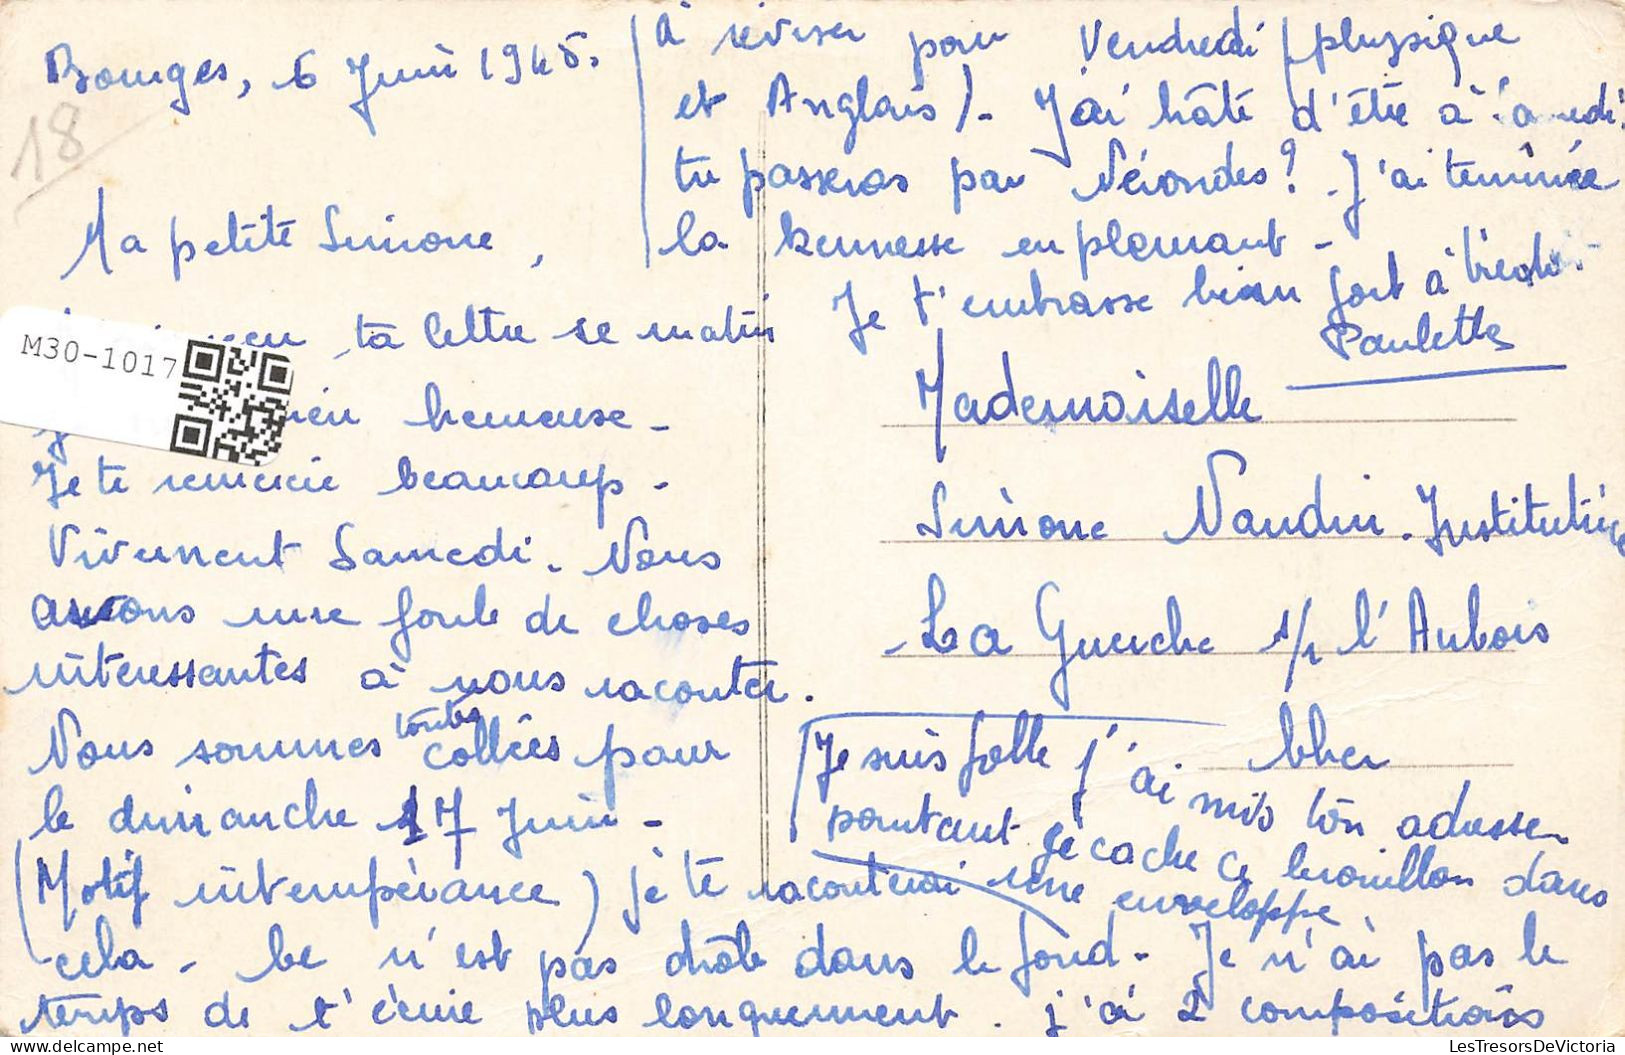 Bourges, 6 Juin 1945.
18
Ma petite Simone,
M30-1017
reçu ta lettre se matin
bien heureuse -
Je te remercie beaucoup -
Vivement Samedi. Nous
avons une foule de choses
intéressantes à nous raconter.
Nous sommes toutes collées pour
le dimanche 17 Juin -
(Motif intempérance) je te raconterai
cela - Ce n'est pas drôle dans le fond - Je n'ai pas le
temps de t'écrire plus longuement. j'ai 2 compositions
à réviser pour Vendredi (physique
et Anglais) - J'ai hâte d'être à
tu passeras par Nérondes? - J'ai terminée
la en pleurant -
Je t'embrasse bien fort à bientôt
Paulette
Mademoiselle
Simone Naudin - Institutrice
La Guerche s/ l'Aubois
Cher
Je suis folle j'ai mis ton adresse
pourtant je cache ce brouillon dans
une enveloppe
LesTresorsDeVictoria